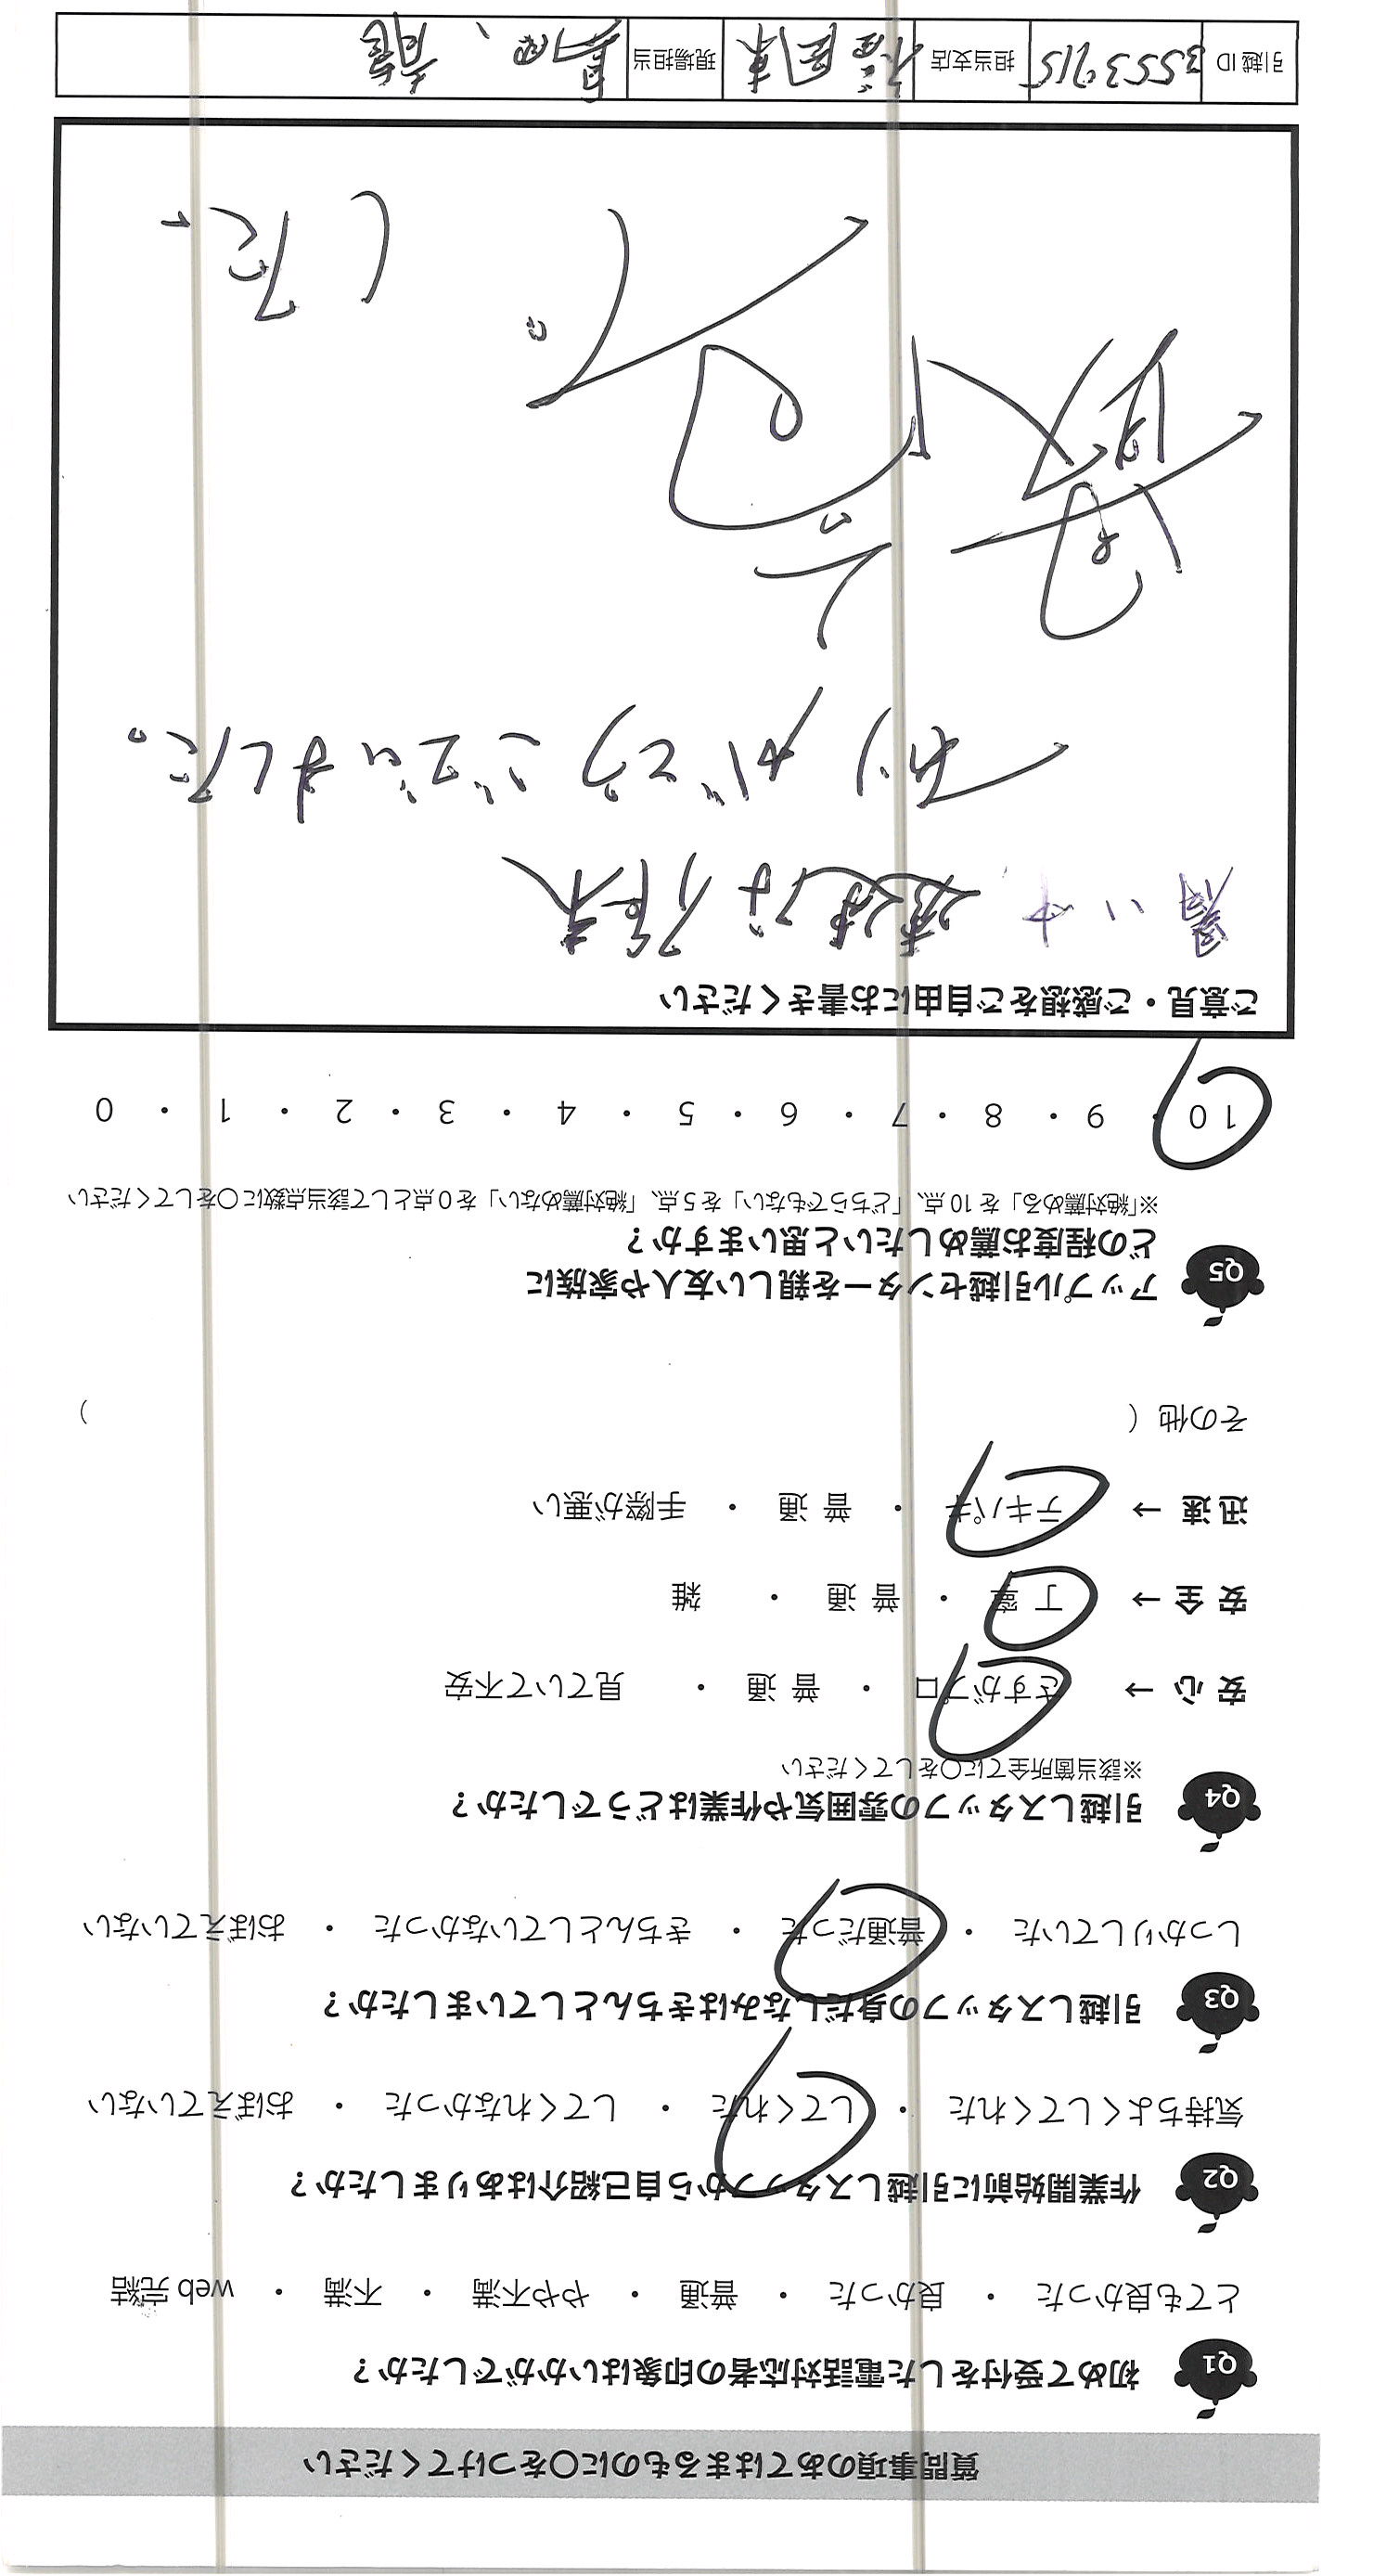 質問事項のあてはまるものに○をつけてください
Q1 初めて受付をした電話対応者の印象はいかがでしたか？
とても良かった ・ 良かった ・ 普通 ・ やや不満 ・ 不満 ・ web 完結
Q2 作業開始前に引越しスタッフから自己紹介はありましたか？
気持ちよくしてくれた ・ してくれた ・ してくれなかった ・ おぼえていない
Q3 引越しスタッフの身だしなみはきちんとしていましたか？
しっかりしていた ・ 普通だった ・ きちんとしていなかった ・ おぼえていない
Q4 引越しスタッフの雰囲気や作業はどうでしたか？
※該当箇所全てに○をしてください
安 心 → さすがプロ ・ 普 通 ・ 見ていて不安
安 全 → 丁 寧 ・ 普 通 ・ 雑
迅 速 → テキパキ ・ 普 通 ・ 手際が悪い
その他（ ）
Q5 アップル引越センターを親しい友人や家族に
どの程度お薦めしたいと思いますか？
※「絶対薦める」を 10 点、「どちらでもない」を 5 点、「絶対薦めない」を 0 点として該当点数に○をしてください
10 ・ 9 ・ 8 ・ 7 ・ 6 ・ 5 ・ 4 ・ 3 ・ 2 ・ 1 ・ 0
ご意見・ご感想をご自由にお書きください
暑い中、迅速な作業
ありがとうございました。
した。
引越 ID 3553715 担当支店 福岡東 現場担当